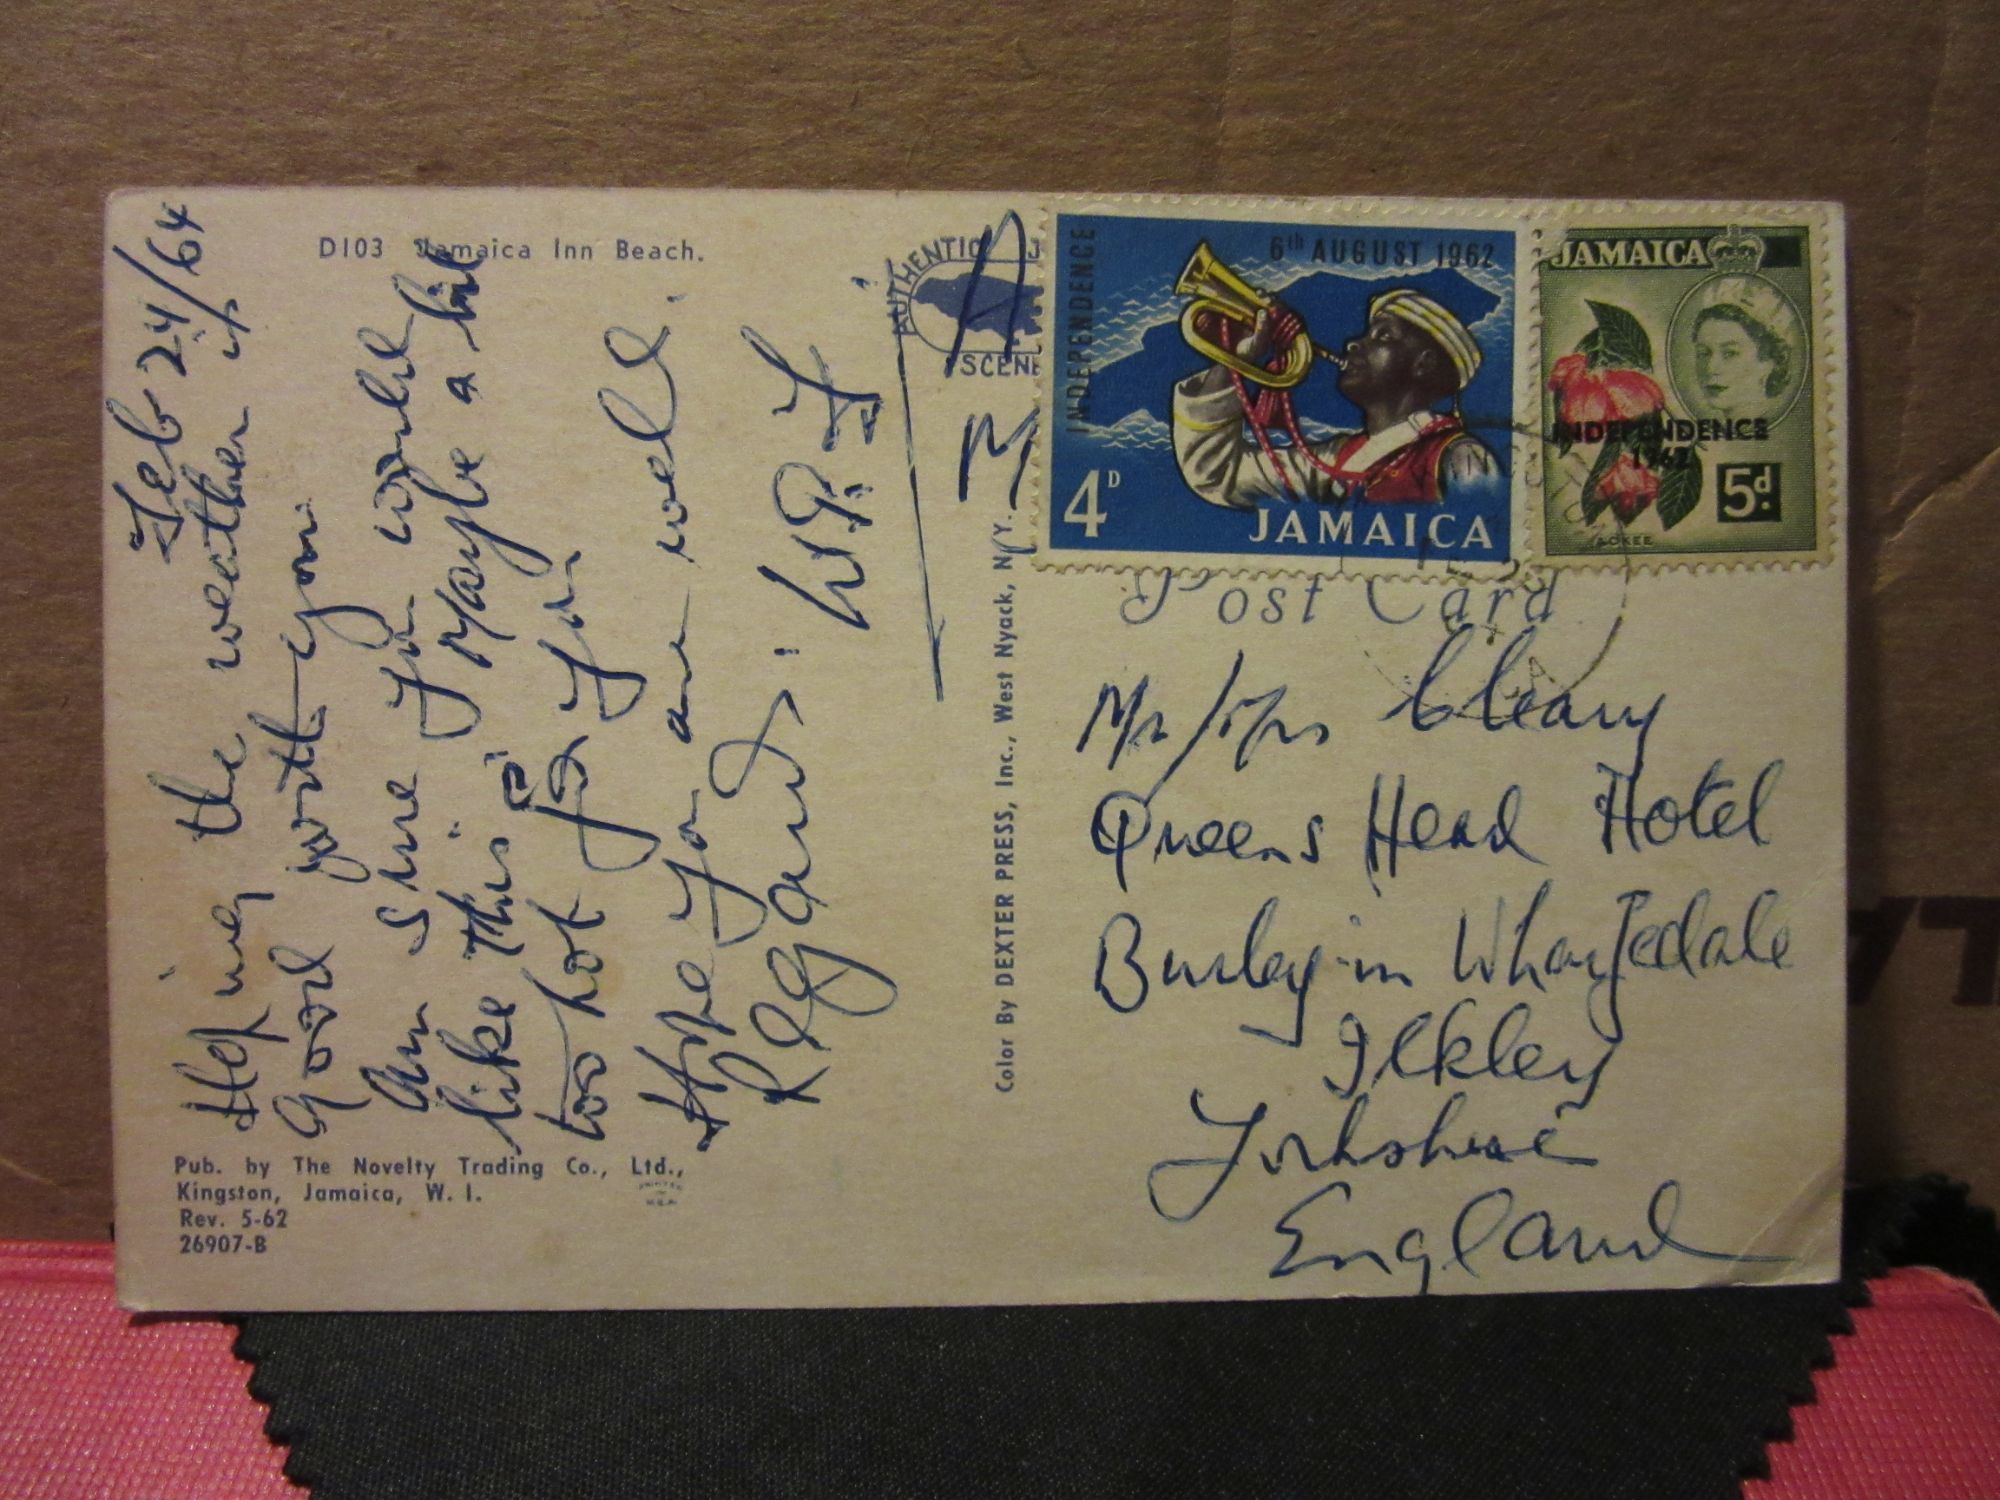 D103 Jamaica Inn Beach.
Feb 24/64
Hoping the weather is
good with you.
Am sure you would
like this. Maybe a bit
too hot for you.
Hope you are well.
Regards:
AUTHENTIC
SCENE
A
M
Color By DEXTER PRESS, Inc., West Nyack, N.Y.
Pub. by The Novelty Trading Co., Ltd.,
Kingston, Jamaica, W. I.
Rev. 5-62
26907-B
INDEPENDENCE
6th AUGUST 1962
4D
JAMAICA
JAMAICA
INDEPENDENCE
1962
5d.
ACKEE
Post Card
Mr/Mrs Cleary
Queens Head Hotel
Burley-in Wharfedale
Ilkley
Yorkshire
England